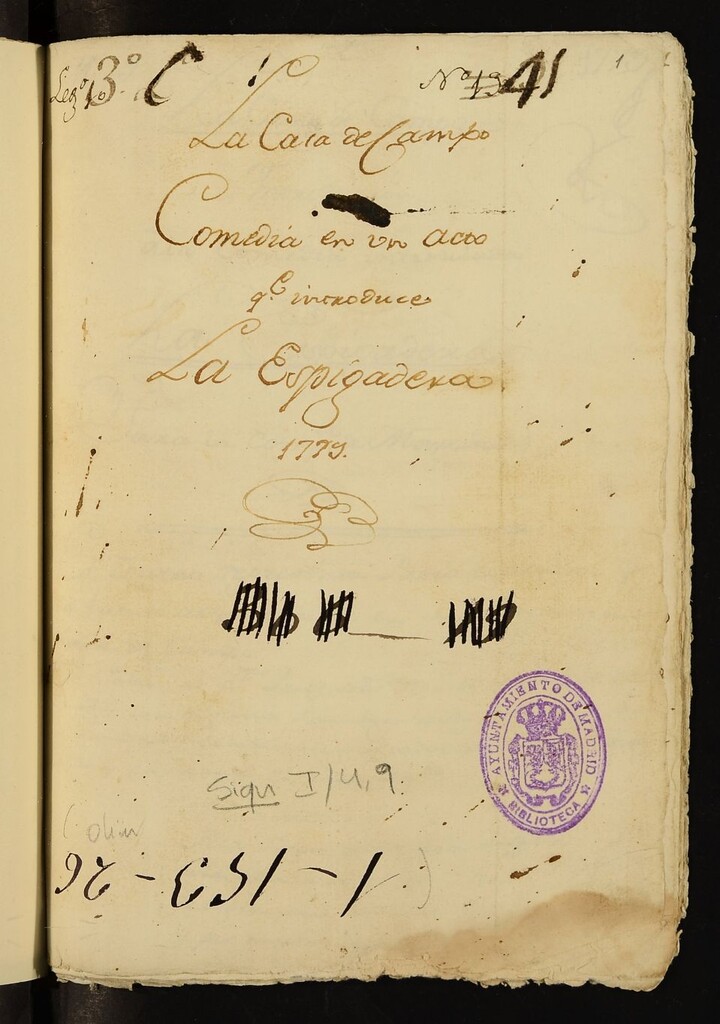 Leg.º 3º C
Nº 41
1
La Casa de Campo
Comedia en un acto
q.e introduce
La Espigadera
1779.
AYUNTAMIENTO DE MADRID
BIBLIOTECA
Sign I/4,9
(olim
1-153-26
)